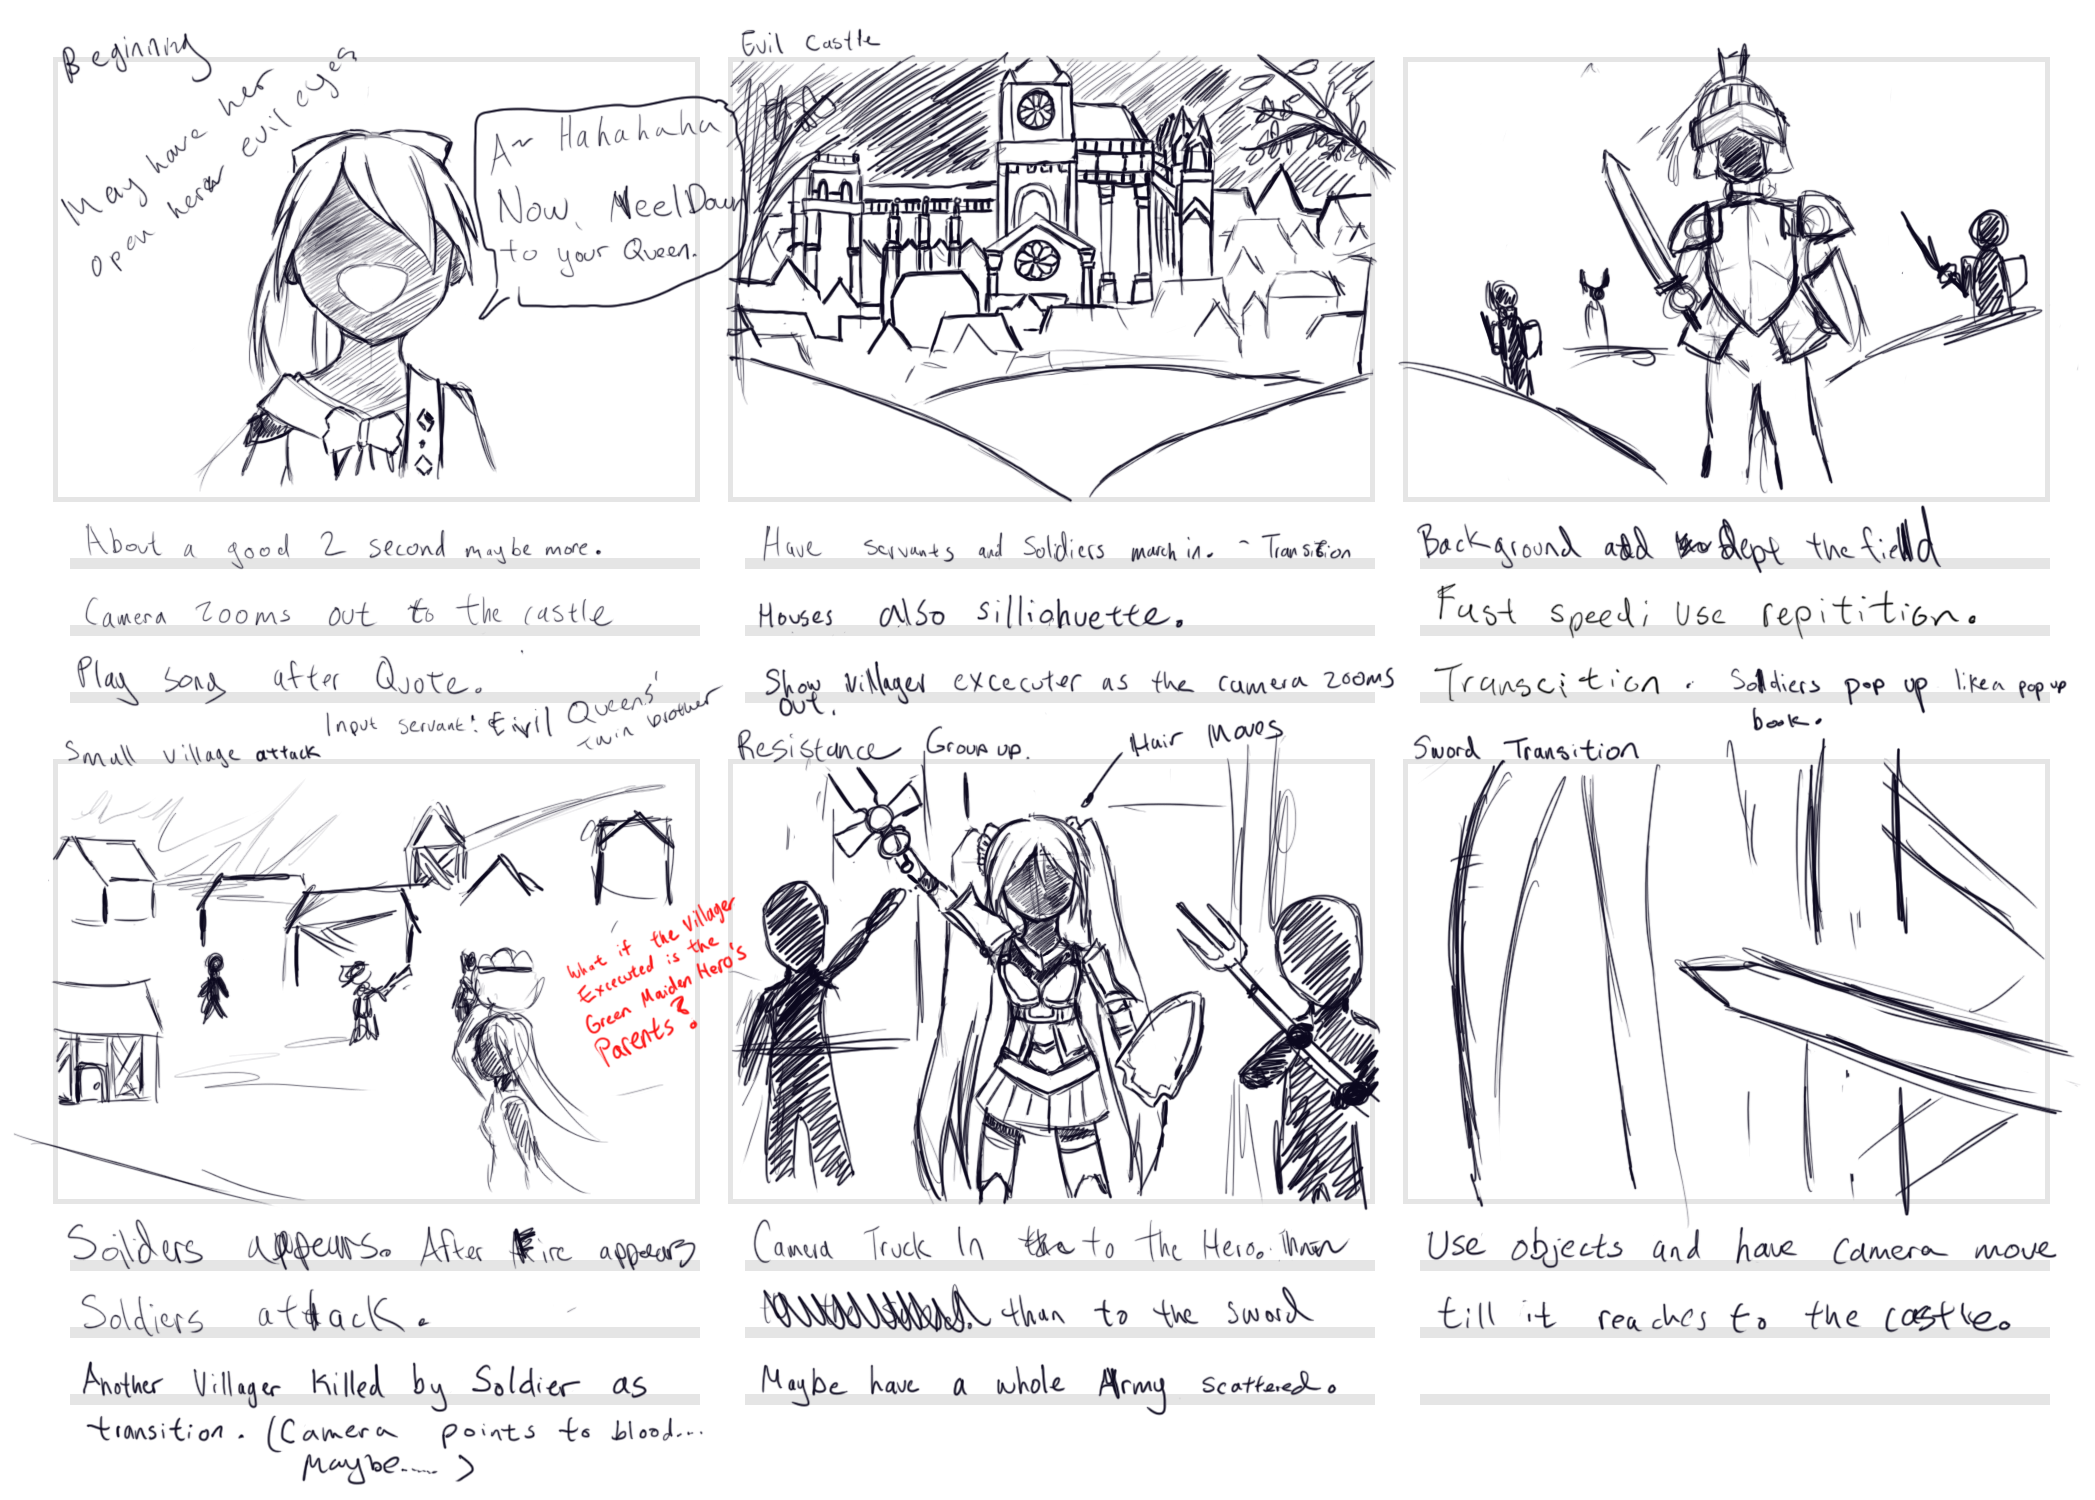 Beginning
May have her
open her evil eyes
A~ Hahahaha
Now, NeelDown
to your Queen.
About a good 2 second maybe more.
Camera zooms out to the castle
Play song after Quote.
Input servant: Evil Queens'
twin brother
Evil Castle
Have servants and Soldiers march in. ~ Transition
Houses also silliohuette.
Show villager excecuter as the camera zooms
out.
Background add dept the field
Fast speed; Use repitition.
Transcition. Soldiers pop up like a pop up
book.
Small village attack
What if the Villager
Excecuted is the
Green Maiden Hero's
Parents?
Soilders appears. After Fire appears
Soldiers attack.
Another Villager Killed by Soldier as
transition. (Camera points to blood...
Maybe..... )
Resistance Group up.
Hair Moves
Camera Truck In to the Hero.
than to the sword
Maybe have a whole Army scattered.
Sword Transition
Use objects and have camera move
till it reaches to the castle.